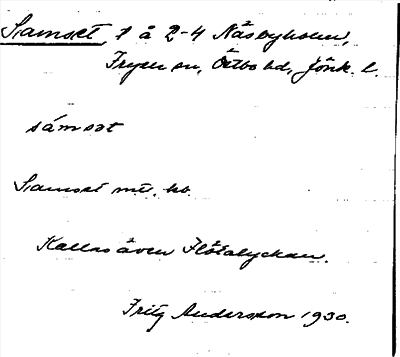 Samset, 1 å 2-4 Näsbyholm,
Fryele sn, Östbo hd, Jönk. l.
sámsət
Samset mtl. kb.
Kallas även Flötalyckan.
Fritz Andersson 1930.